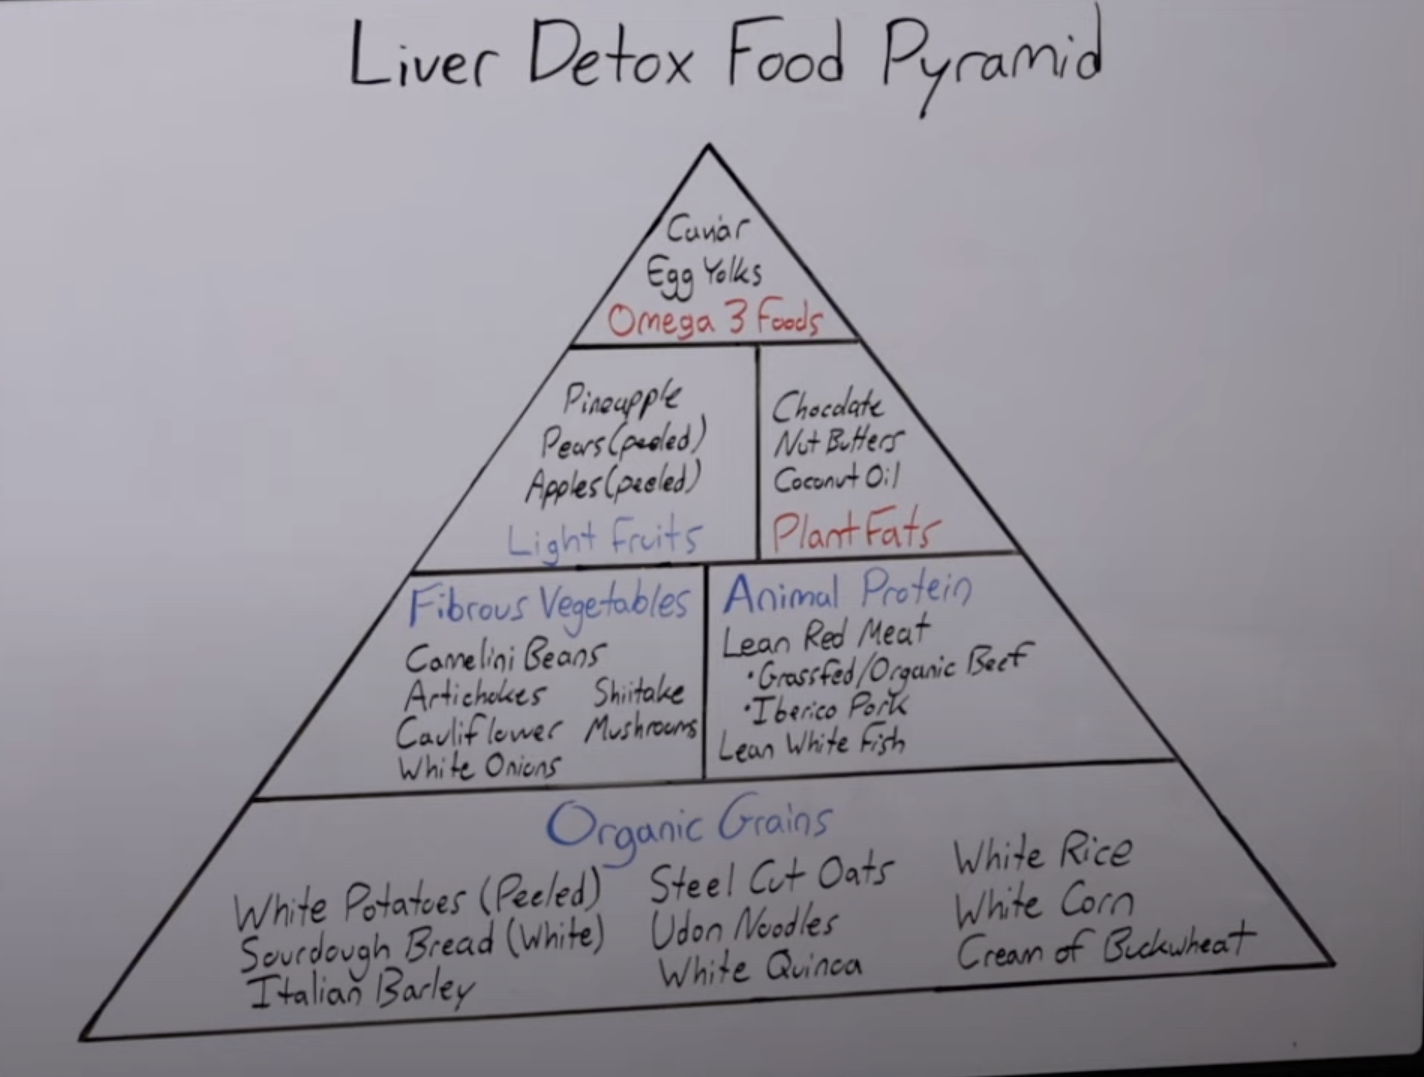 Liver Detox Food Pyramid
Caviar
Egg Yolks
Omega 3 Foods
Pineapple
Pears (peeled)
Apples (peeled)
Light Fruits
Chocolate
Nut Butters
Coconut Oil
Plant Fats
Fibrous Vegetables
Camelini Beans
Artichokes Shiitake
Cauliflower Mushrooms
White Onions
Animal Protein
Lean Red Meat
•Grassfed/Organic Beef
•Iberico Pork
Lean White Fish
Organic Grains
White Potatoes (Peeled)
Sourdough Bread (White)
Italian Barley
Steel Cut Oats
Udon Noodles
White Quinoa
White Rice
White Corn
Cream of Buckwheat